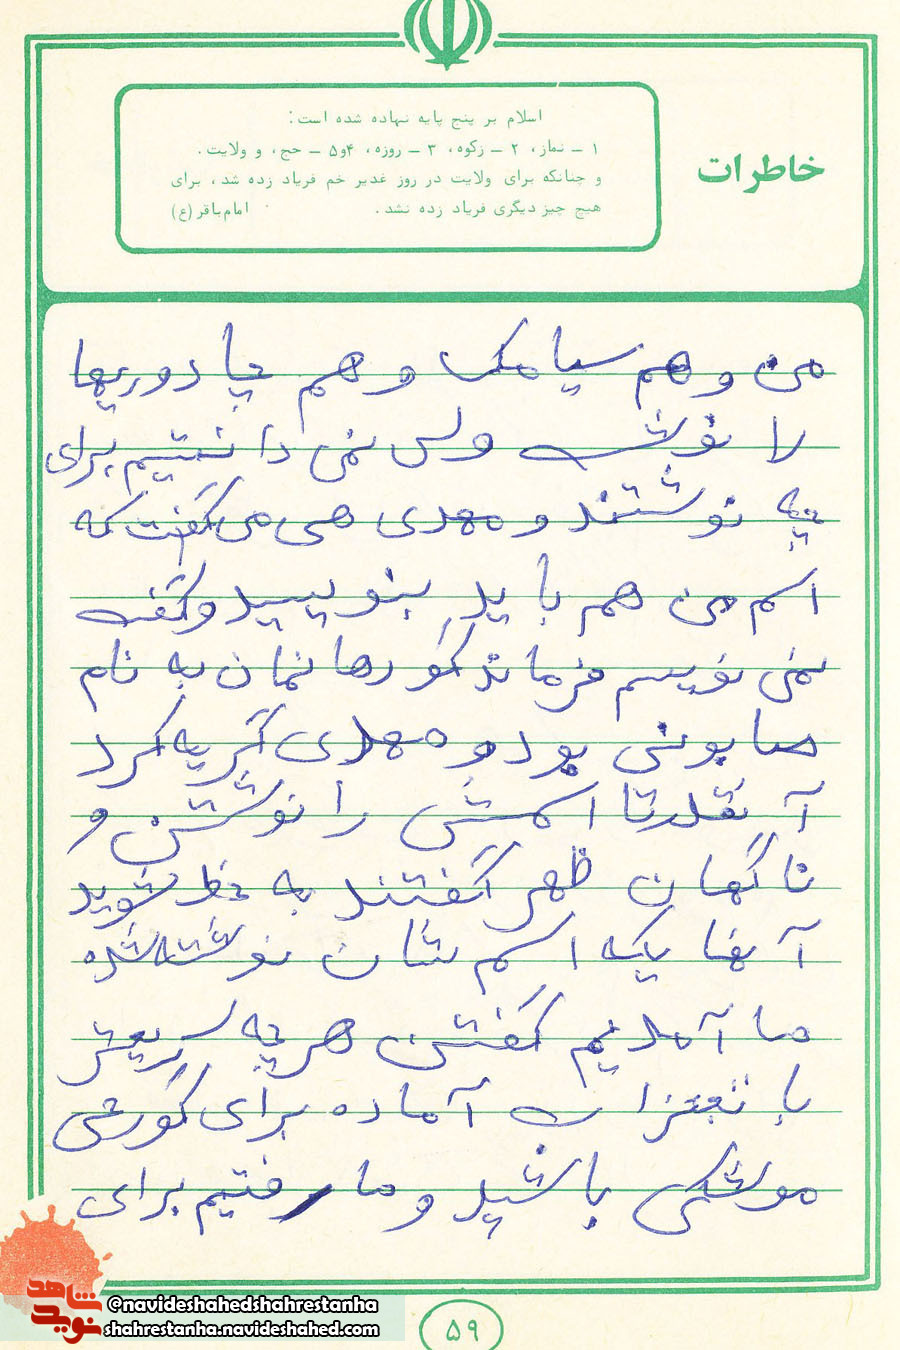 اسلام بر پنج پایه نهاده شده است:
۱ – نماز، ۲ – زکوه، ۳ – روزه، ۴و۵ – حج، و ولایت.
و چنانکه برای ولایت در روز غدیر خم فریاد زده شد، برای
هیچ چیز دیگری فریاد زده نشد. امام باقر (ع)
خاطرات
من و هم سیامک و هم چادوریها
لا نوشت ولس نمی دانستیم برای
چه نوشتند و مهدی هی می گفت که
اسم من هم باید بنویسید و گفت
نمی نویسم فرماند گورهانمان به نام
صابونی بود و مهدی گریه کرد
آنقدرتا اسمش را نوشتن و
ناگهان ظهر گفتند به خط شوید
آنهایکه اسم شان نوشته شده
ما آمدیم گفتن هر چه سریعتر
با تجهزات آماده برای گورشی
موشکی باشید و ما رفتیم برای
شاهد
نوید
@navideshahedshahrestanha
shahrestanha.navideshahed.com
۵۹